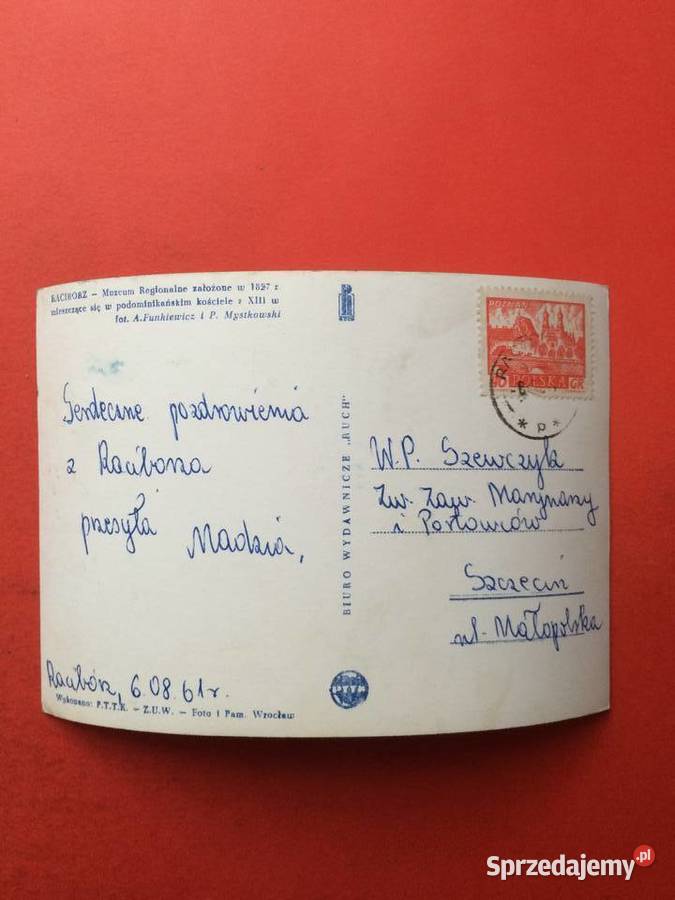 RACIBÓRZ — Muzeum Regionalne założone w 1897 r
mieszczące się w podominikańskim kościele z XIII w
fot. A. Funkiewicz i P. Mystkowski
RUCH
POZNAŃ
POLSKA GR
Serdeczne pozdrowienia
z Raciborza
przesyła
Madzia,
Racibórz, 6.08.61r.
Wykonano: P.T.T.K. — Z.U.W. — Foto i Pam. Wrocław
BIURO WYDAWNICZE „RUCH"
W.P. Szewczyk
Zw. Zaw. Marynarzy
i Portowców
Szczecin
ul. Małopolska
Sprzedajemy.pl